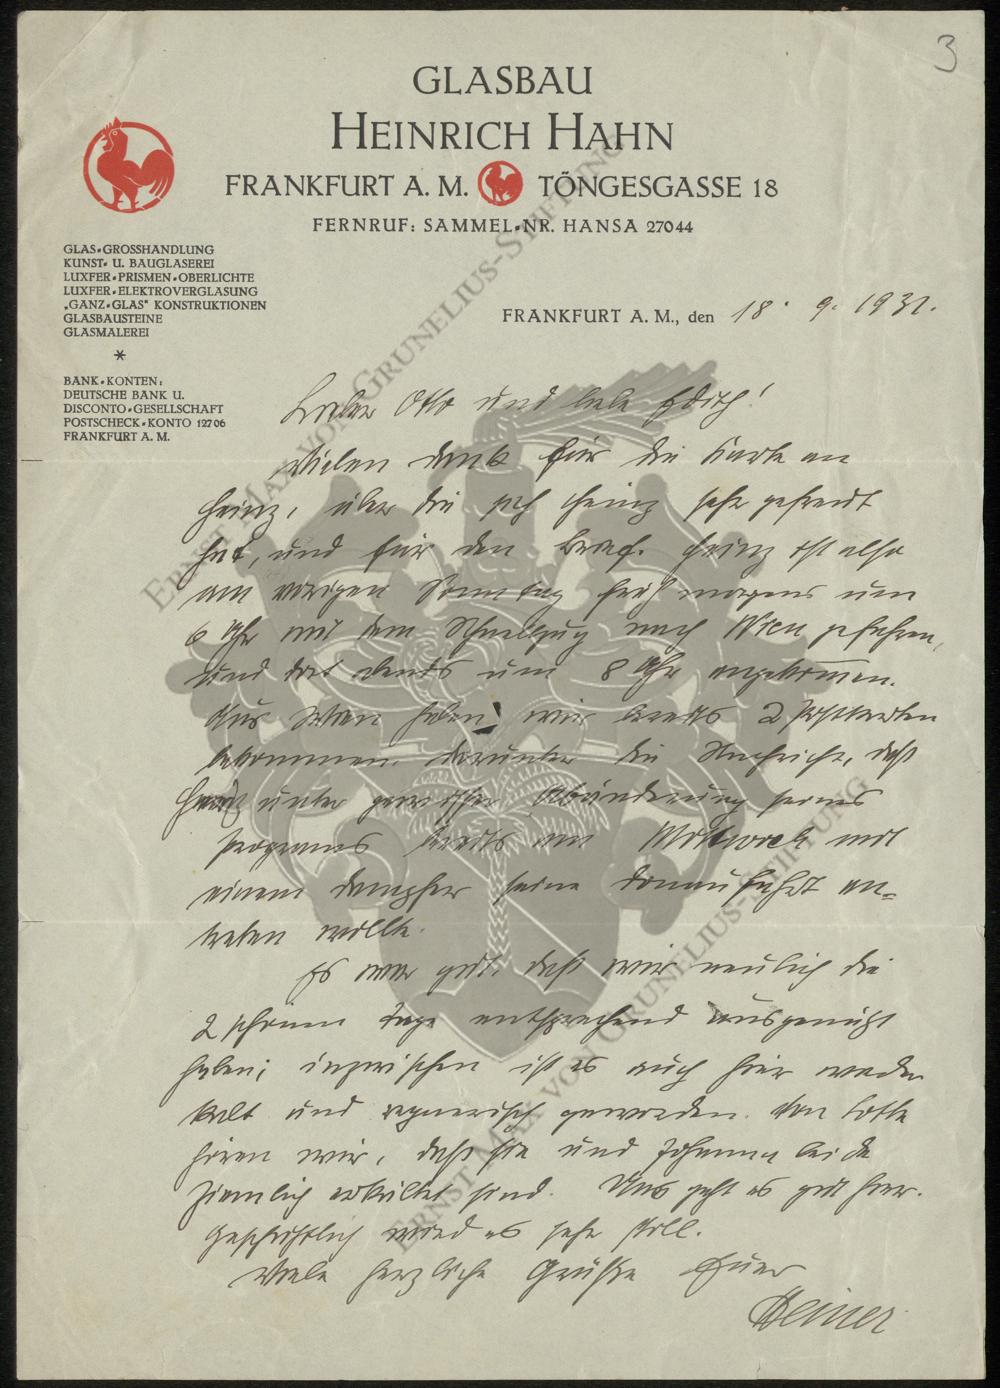 3
GLASBAU
HEINRICH HAHN
FRANKFURT A. M. TÖNGESGASSE 18
FERNRUF: SAMMEL-NR. HANSA 27044
GLAS-GROSSHANDLUNG
KUNST- U. BAUGLASEREI
LUXFER-PRISMEN-OBERLICHTE
LUXFER-ELEKTROVERGLASUNG
„GANZ-GLAS" KONSTRUKTIONEN
GLASBAUSTEINE
GLASMALEREI
*
BANK-KONTEN:
DEUTSCHE BANK U.
DISCONTO-GESELLSCHAFT
POSTSCHECK-KONTO 12706
FRANKFURT A. M.
FRANKFURT A. M., den 18. 9. 1931.
Lieber Otto und liebe Edith!
Vielen Dank für die Karte an
Heinz, über die sich Heinz sehr gefreut
hat, und für den Brief. Heinz ist also
am vorigen Sonntag früh morgens um
6 Uhr mit dem Schnellzug nach Wien gefahren,
und dort abends um 8 Uhr angekommen.
Aus Wien haben wir bereits 2 Postkarten
bekommen, darunter die Nachricht, daß
Heinz unter gewisser Abänderung seines
Programms bereits am Mittwoch mit
einem Dampfer seine Donaufahrt an-
treten wollte.
Es war gut, daß wir neulich die
2 schönen Tage entsprechend ausgenützt
haben; inzwischen ist es auch hier wieder
kalt und regnerisch geworden. Von Lotte
hören wir, daß sie und Johanna beide
ziemlich erkältet sind. Uns geht es gut hier.
Geschäftlich wird es sehr still.
Viele herzliche Grüße Euer
Heiner
ERNST MAX VON GRUNELIUS-STIFTUNG
ERNST MAX VON GRUNELIUS-STIFTUNG